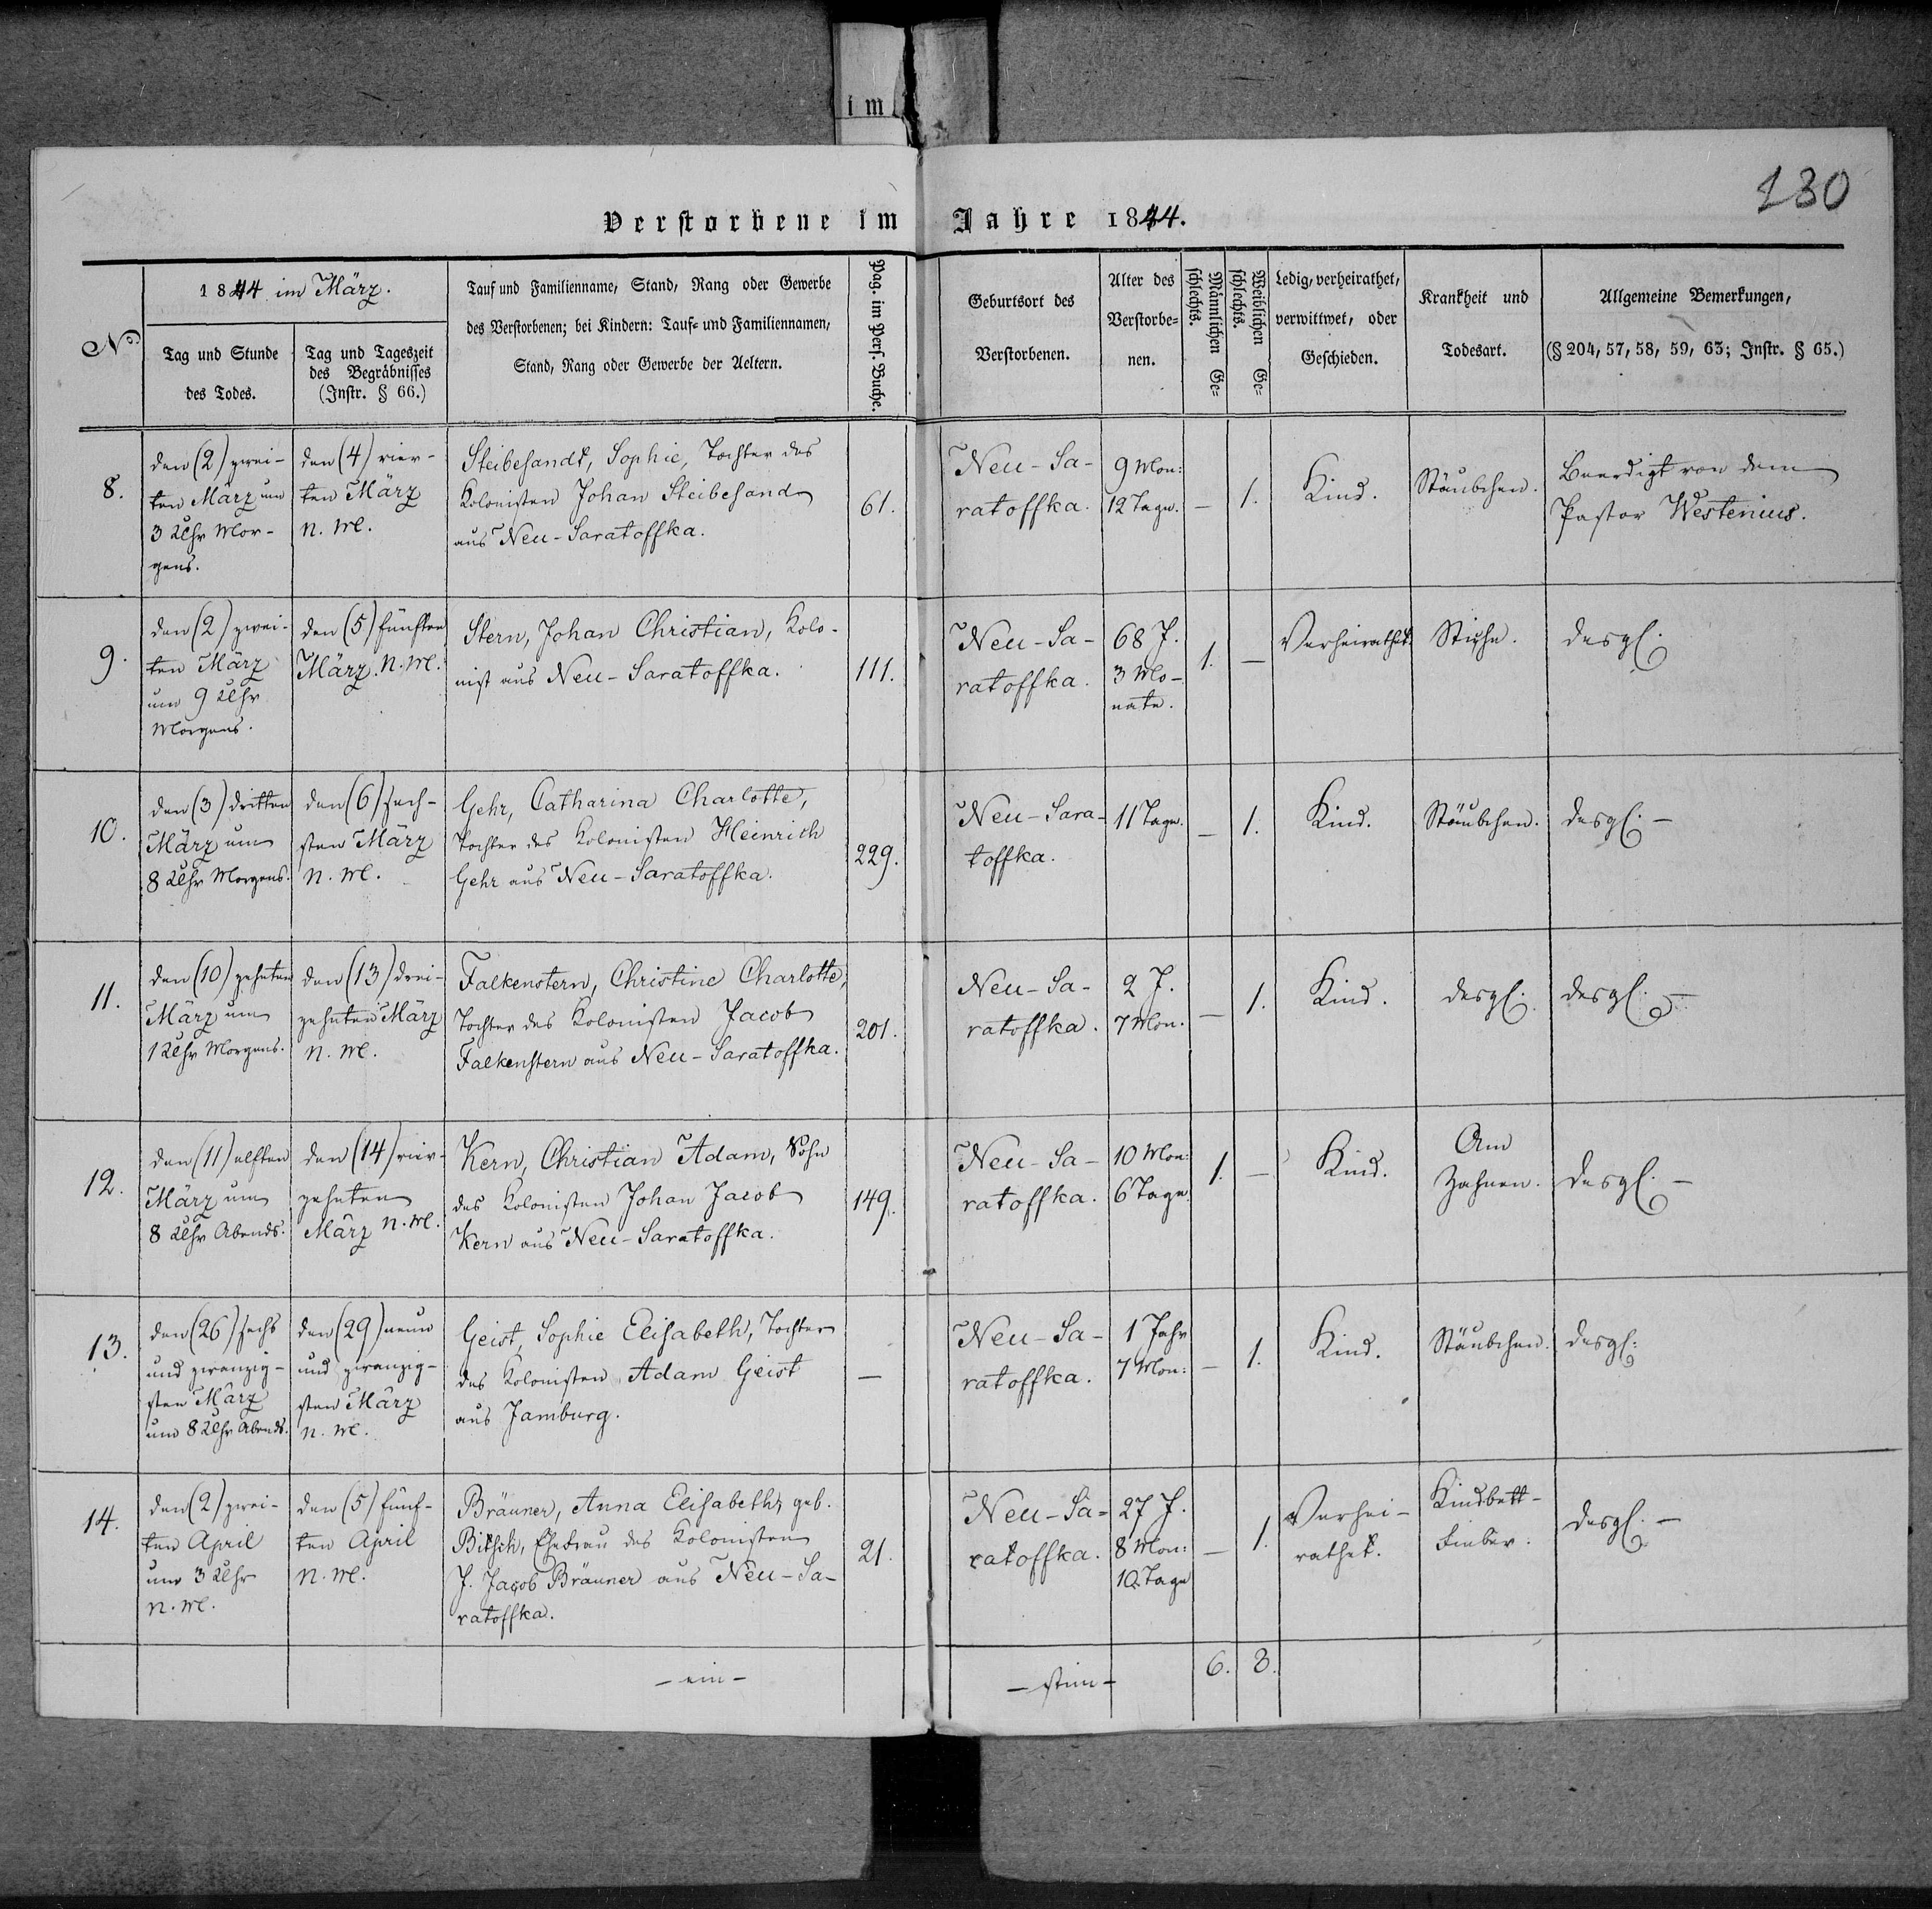 im
130
Verstorbene im Jahre 1844.
No
1844 im März.
Tag und Stunde
des Todes.
Tag und Tageszeit
des Begräbnisses
(Instr. § 66.)
Tauf und Familienname, Stand, Rang oder Gewerbe
des Verstorbenen; bei Kindern: Tauf- und Familiennamen,
Stand, Rang oder Gewerbe der Aeltern.
Pag. im Pers. Buche.
Geburtsort des
Verstorbenen.
Alter des
Verstorbe-
nen.
Männlichen Ge-
schlechts.
Weiblichen Ge-
schlechts.
Ledig, verheirathet,
verwittwet, oder
Geschieden.
Krankheit und
Todesart.
Allgemeine Bemerkungen,
(§ 204, 57, 58, 59, 63; Instr. § 65.)
8.
den (2) zwei-
ten März um
3 Uhr Mor-
gens.
den (4) vier-
ten März
n. M.
Steibesandt, Sophie, Tochter des
Kolonisten Johan Steibesand
aus Neu-Saratoffka.
61.
Neu-Sa-
ratoffka.
9 Mon:
12 Tage.
—
1.
Kind.
Stäubchen.
Beerdigt von dem
Pastor Westenius.
9.
den (2) zwei-
ten März
um 9 Uhr
Morgens.
den (5) fünften
März. n. M.
Stern, Johan Christian, Kolo-
nist aus Neu-Saratoffka.
111.
Neu-Sa-
ratoffka.
68 J.
3 Mo-
nate.
1.
—
Verheirathet.
Stiche.
desgl.
10.
den (3) dritten
März um
8 Uhr Morgens.
den (6) sech-
sten März
n. M.
Gehr, Catharina Charlotte,
Tochter des Kolonisten Heinrich
Gehr aus Neu-Saratoffka.
229.
Neu-Sara-
toffka.
11 Tage.
—
1.
Kind.
Stäubchen.
desgl. —
11.
den (10) zehnten
März um
1 Uhr Morgens.
den (13) drei-
zehnten März
n. M.
Falkenstern, Christine Charlotte,
Tochter des Kolonisten Jacob
Falkenstern aus Neu-Saratoffka.
201.
Neu-Sa-
ratoffka.
2 J.
7 Mon.
—
1.
Kind.
desgl.
desgl. —
12.
den (11) elften
März um
8 Uhr Abends.
den (14) vier-
zehnten
März n. M.
Kern, Christian Adam, Sohn
des Kolonisten Johan Jacob
Kern aus Neu-Saratoffka.
149.
Neu-Sa-
ratoffka.
10 Mon:
6 Tage.
1.
—
Kind.
Am
Zahnen.
desgl. —
13.
den (26) sechs
und zwanzig-
sten März
um 8 Uhr Abends.
den (29) neun
und zwanzig-
sten März
n. M.
Geist, Sophie Elisabeth, Tochter
des Kolonisten Adam Geist
aus Jamburg.
—
Neu-Sa-
ratoffka.
1 Jahr
7 Mon:
—
1.
Kind.
Stäubchen.
desgl:
14.
den (2) zwei-
ten April
um 3 Uhr
n. M.
den (5) fünf-
ten April
n. M.
Bräuner, Anna Elisabeth, geb.
Bitsch, Ehefrau des Kolonisten
J. Jacob Bräuner aus Neu-Sa-
ratoffka.
21.
Neu-Sa-
ratoffka.
27 J.
8 Mon:
10 Tage
—
1.
Verhei-
rathet.
Kindbett-
Fieber.
desgl. —
— ein —
— stim —
6.
8.